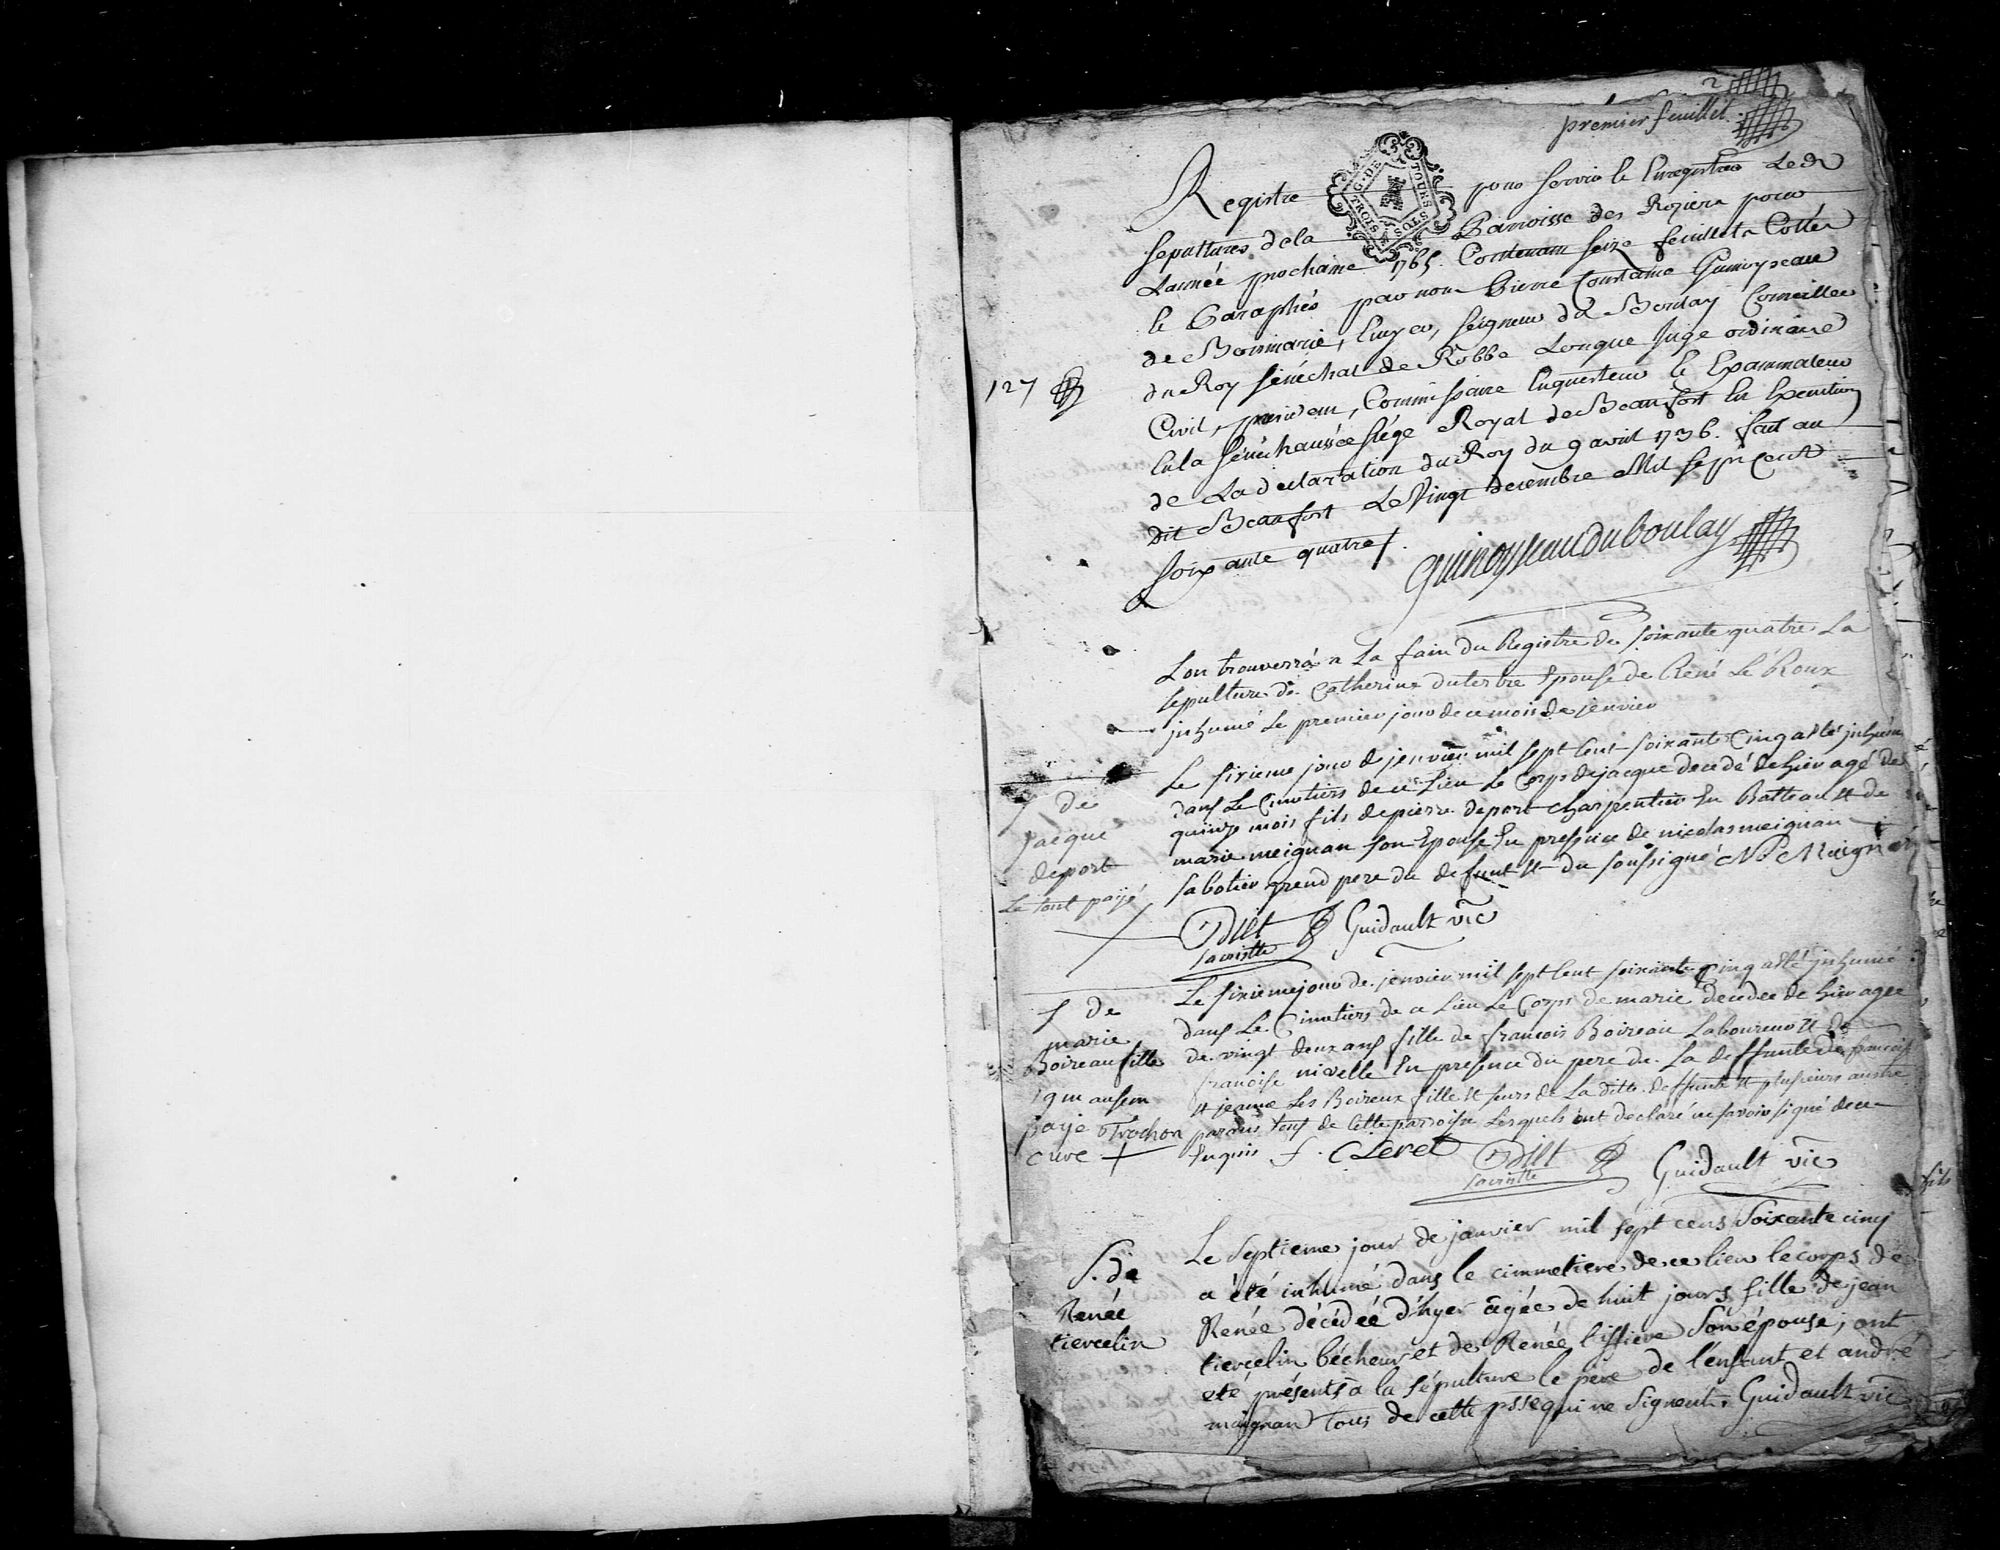 2
premier feuillet
G. DE TOURS
TROIS SOLS
Registre pour servir a Enregistrer Les
sepultures de la Parroisse des Roziers pour
Lannée prochaine 1765. Contenant seize feuillets Cottés
& Paraphés par nous Pierre Constame Guinoyseau
de Boismarie, Ecuyer, seigneur du Boulay Conseiller
du Roy sénéchal de Robbe Longue Juge ordinaire
127
Civil, president, Commissaire Enquesteur & Examinateur
En la sénéchaussée siége Royal de Beaufort En Execution
de La declaration du Roy du 9 avril 1736. fait au
dit Beaufort Le Vingt decembre Mil sept Cent
soixante quatre /.
Guinoyseau du boulay
Lon trouverra a La fain du Registre de soixante quatre La
sepulture de Catherine dutertre Epouse de René Le Roux
inhumé Le premier jour de ce mois de jenvier
S de
jacque
deport
Le tout payé
Le sixieme jour de jenvier mil sept Cent soixante Cinq a été inhumé
dans Le Cimetiere de ce Lieu Le Corps de jacque decedé de hier agé de
quinze mois fils de pierre deport charpentier En Batteau & de
marie meignan son Epouse En presence de nicolas meignan
sabotier grend pere du defunt & du soussigné No Meignan
Odiet Guidault vic
sacriste
S de
marie
Boireau fille
19
paye Trochon
cure
Le sixieme jour de jenvier mil sept Cent soixante Cinq a été inhumé
dans Le Cimetiere de ce Lieu Le Corps de marie decedee de hier agee
de vingt deux ans fille de francois Boireau Laboureur & de
francoise nivelle En presence du pere de La deffunte de francoise
& jeanne Les Boireux fille & seurs de La ditte deffunte & plusieurs austre
parans tous de Cette parroisse Lesquels ont declaré ne savoir signé de ce
Enquis f. CLeret Odiet Guidault vic
sacriste
S. de
Renée
tiercelin
Le septieme jour de janvier mil sept cens soixante cinq
a été inhumé dans le cimmetiere de ce lieu le corps de
Renée décédée d'hyer âgée de huit jours fille de jean
tiercelin bécheur et de Renée l'issiere son épouse, ont
eté présents a la sépulture le pere de l'enfant et andré
maignan tous de cette psse qui ne signent. Guidault vic
fils